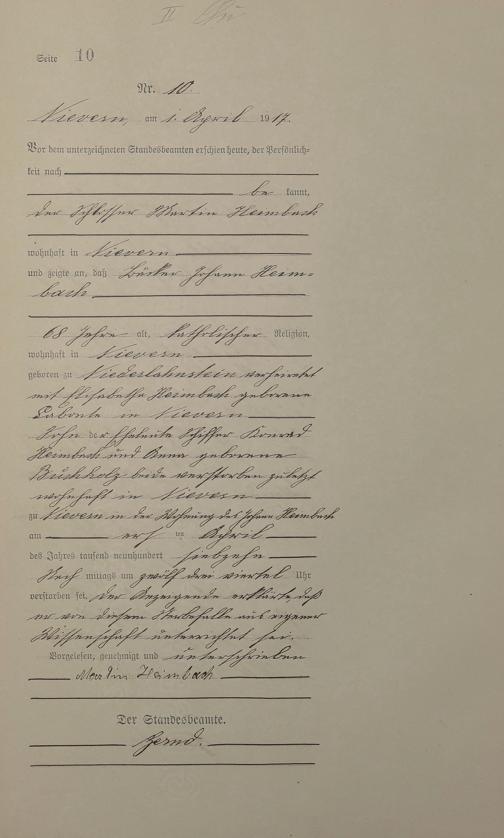 II
Seite 10
Nr. 10.
Nievern, am 1. April 1917.
Vor dem unterzeichneten Standesbeamten erschien heute, der Persönlich-
keit nach
be kannt,
der Schlosser Martin Heimbach
wohnhaft in Nievern
und zeigte an, daß Bäcker Johann Heim-
bach
68 Jahre alt, katholischer Religion,
wohnhaft in Nievern
geboren zu Niederlahnstein verheiratet
mit Elisabetha Heimbach geborene
Labonte in Nievern
Sohn der Eheleute Schiffer Konrad
Heimbach und Anna geborene
Buchholz beide verstorben zuletzt
wohnhaft in Nievern
zu Nievern in der Wohnung des Johann Heimbach
am ersten April
des Jahres tausend neunhundert siebzehn
Nach mittags um zwölf drei viertel Uhr
verstorben sei. Der Anzeigende erklärte, daß
er von diesem Sterbefalle aus eigener
Wissenschaft unterrichtet sei.
Vorgelesen, genehmigt und unterschrieben
Martin Heimbach
Der Standesbeamte.